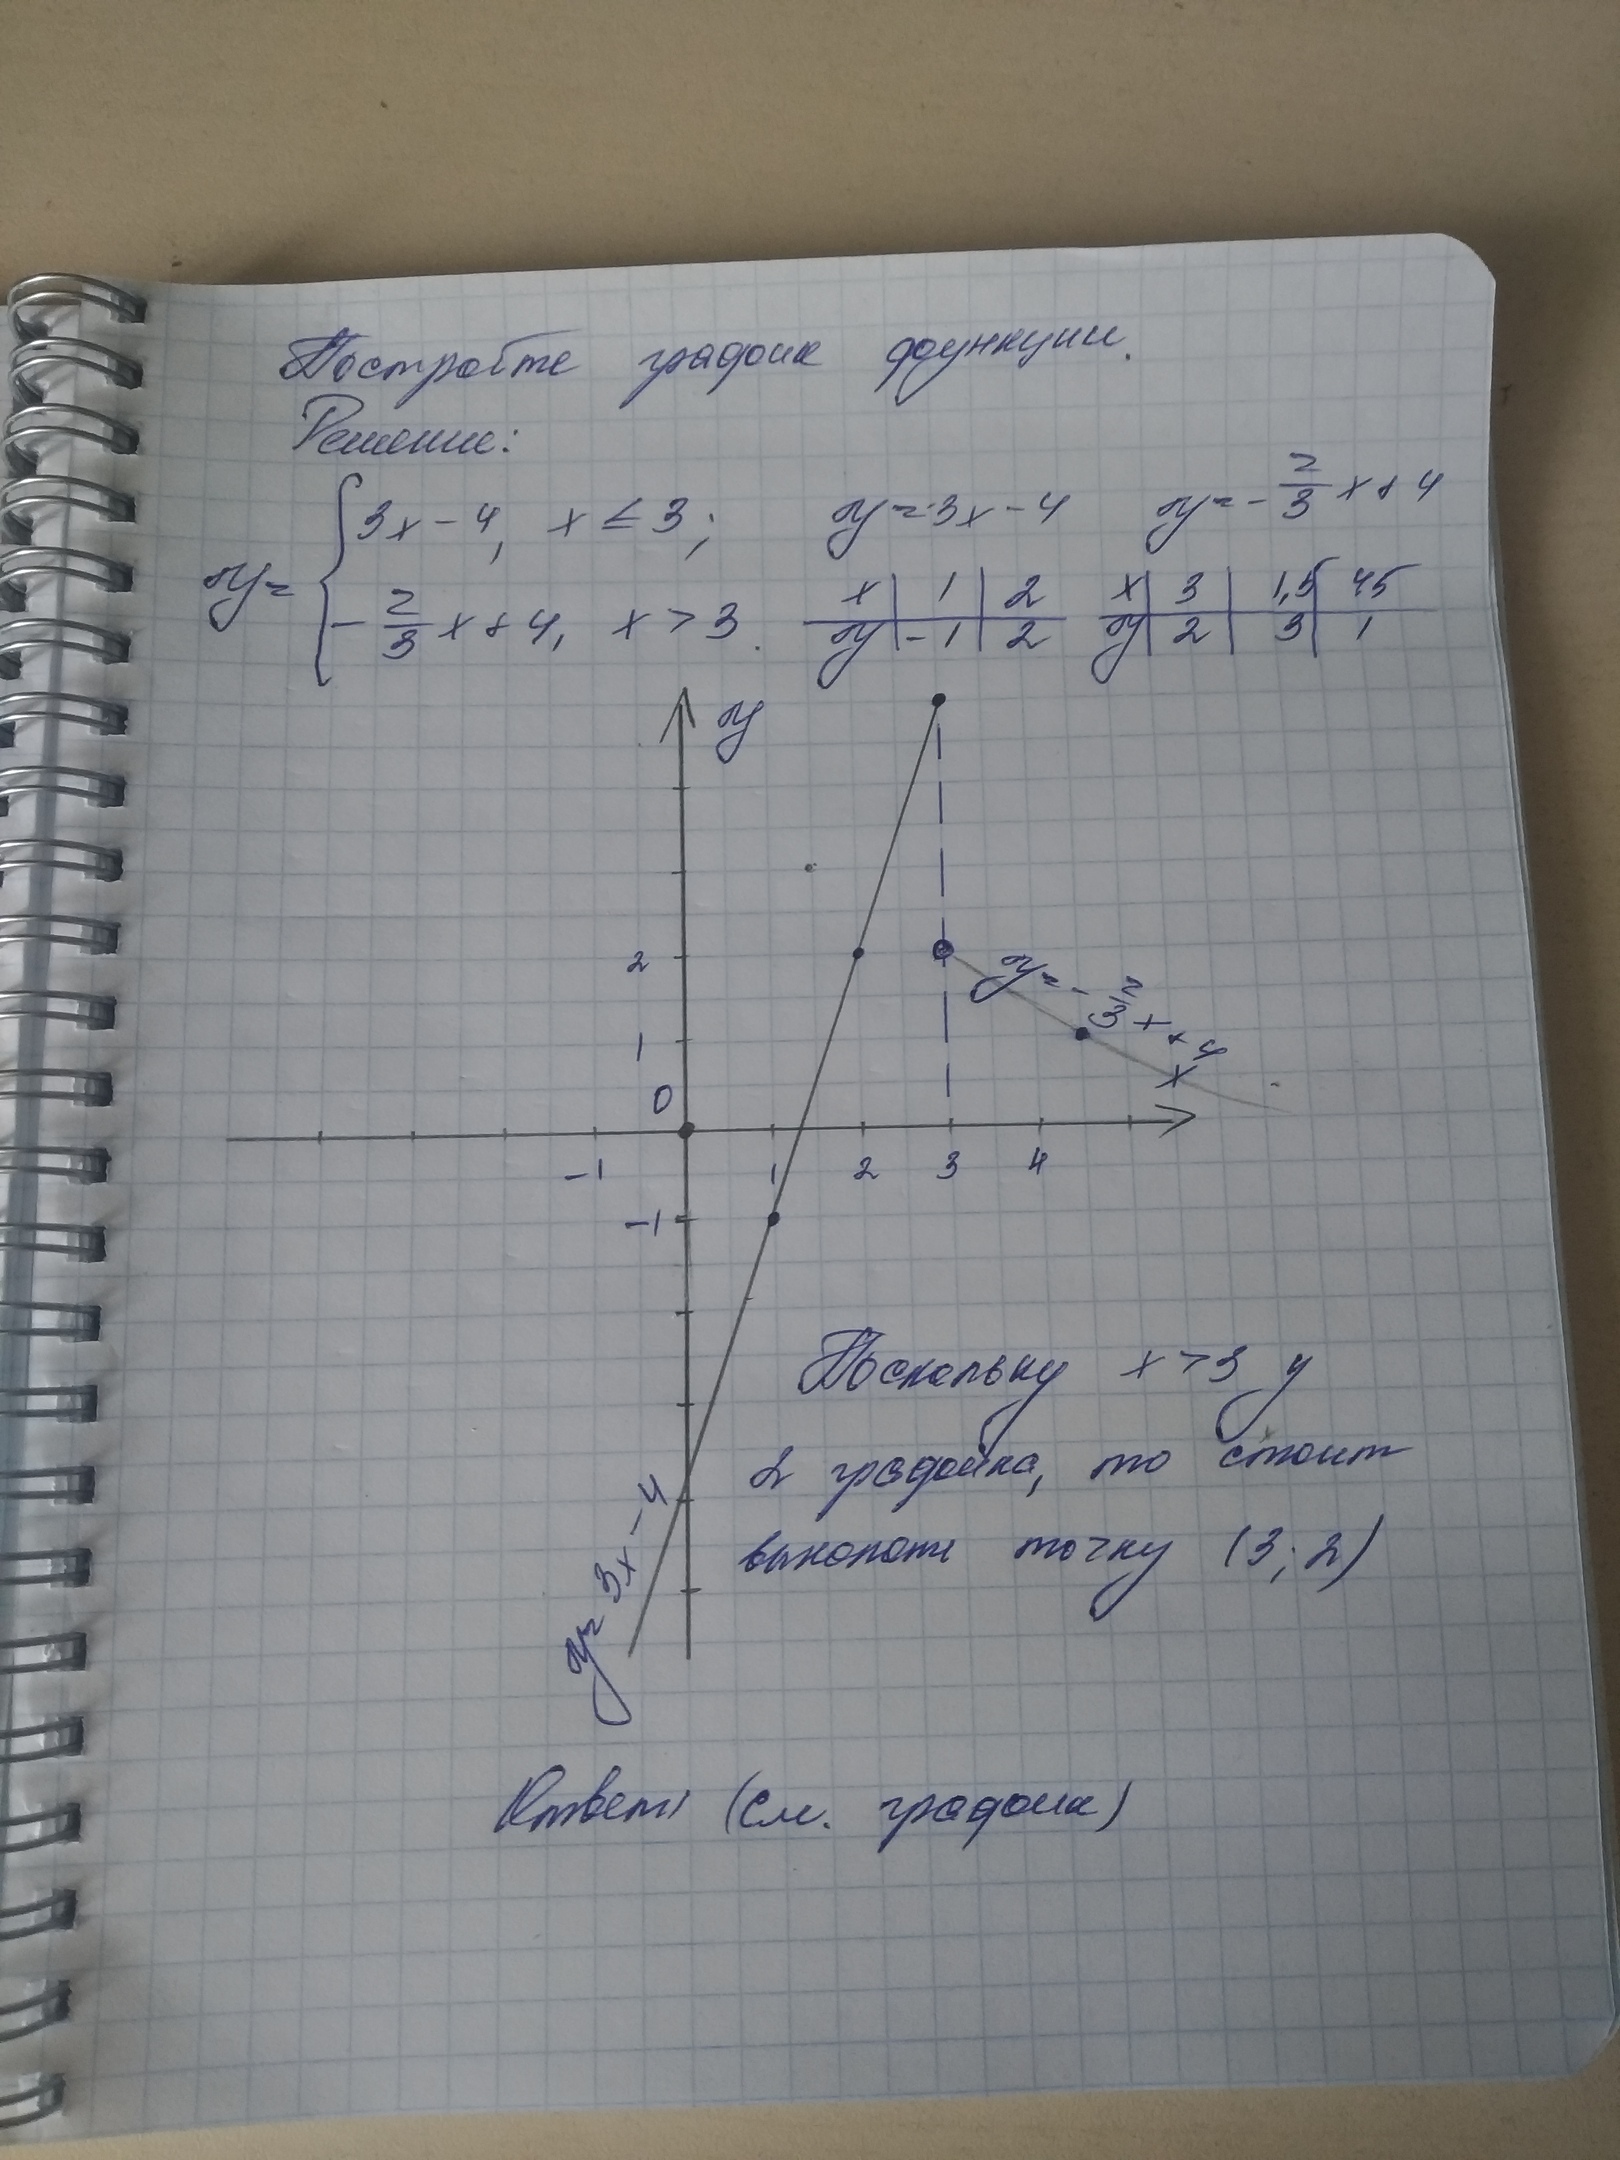 Постройте график функции.
Решение:
y = { 3x - 4, x ≤ 3; y = 3x - 4 y = - 2/3 x + 4
- 2/3 x + 4, x > 3. x | 1 | 2 x | 3 | 1,5 | 4,5
y | -1 | 2 y | 2 | 3 | 1
y
2
y = - 2/3 x + 4
1
x
0
-1 1 2 3 4
-1
Поскольку x > 3 у
2 графика, то стоит
выколоть точку (3; 2)
y = 3x - 4
Ответ: (см. график)